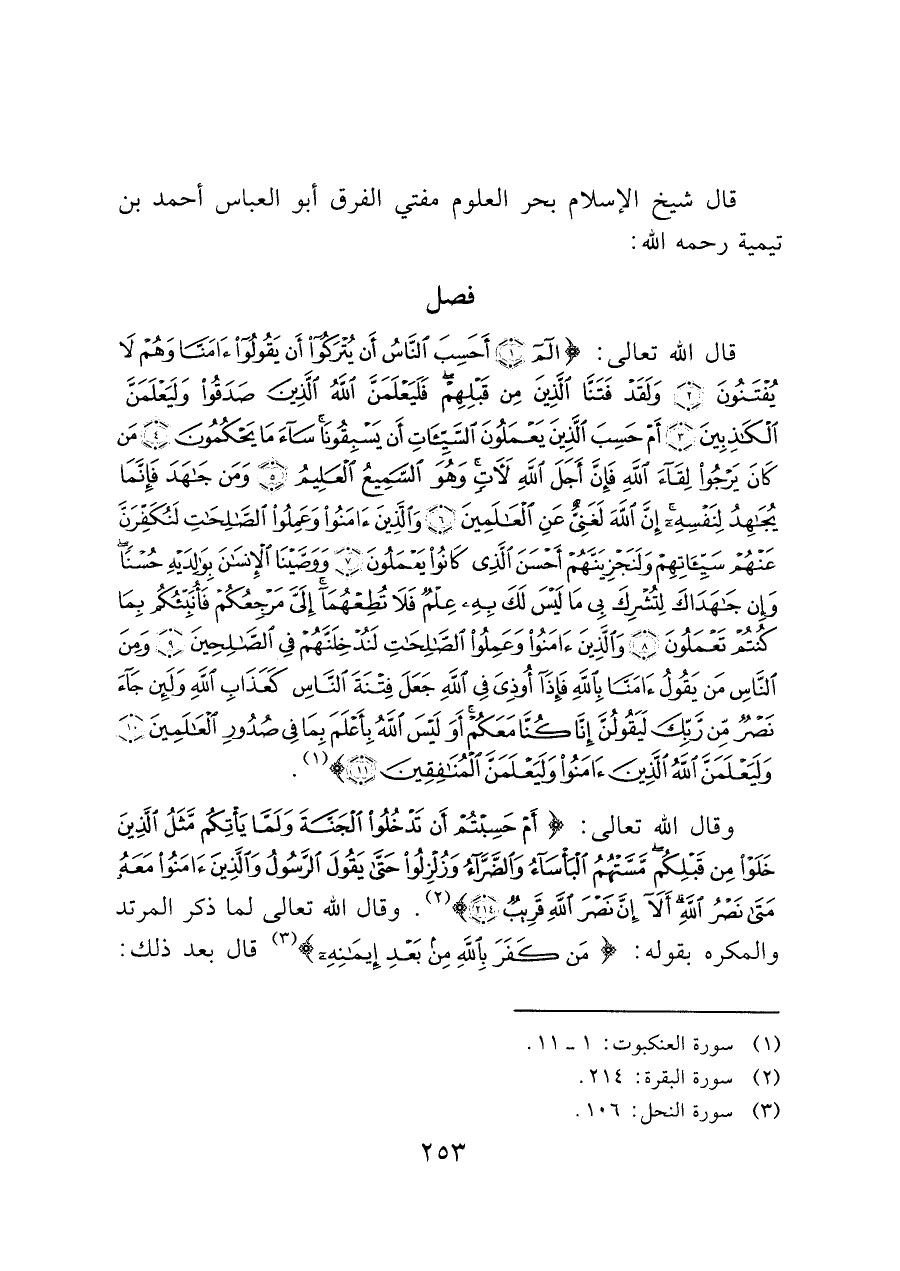 قال شيخ الإسلام بحر العلوم مفتي الفرق أبو العباس أحمد بن
تيمية رحمه الله:
فصل
قال الله تعالى: ﴿ الٓمٓ ١ أَحَسِبَ ٱلنَّاسُ أَن يُتْرَكُوٓا۟ أَن يَقُولُوٓا۟ ءَامَنَّا وَهُمْ لَا
يُفْتَنُونَ ٢ وَلَقَدْ فَتَنَّا ٱلَّذِينَ مِن قَبْلِهِمْ ۖ فَلَيَعْلَمَنَّ ٱللَّهُ ٱلَّذِينَ صَدَقُوا۟ وَلَيَعْلَمَنَّ
ٱلْكَـٰذِبِينَ ٣ أَمْ حَسِبَ ٱلَّذِينَ يَعْمَلُونَ ٱلسَّيِّـَٔاتِ أَن يَسْبِقُونَا ۚ سَآءَ مَا يَحْكُمُونَ ٤ مَن
كَانَ يَرْجُوا۟ لِقَآءَ ٱللَّهِ فَإِنَّ أَجَلَ ٱللَّهِ لَـَٔاتٍ ۚ وَهُوَ ٱلسَّمِيعُ ٱلْعَلِيمُ ٥ وَمَن جَـٰهَدَ فَإِنَّمَا
يُجَـٰهِدُ لِنَفْسِهِۦٓ ۚ إِنَّ ٱللَّهَ لَغَنِىٌّ عَنِ ٱلْعَـٰلَمِينَ ٦ وَٱلَّذِينَ ءَامَنُوا۟ وَعَمِلُوا۟ ٱلصَّـٰلِحَـٰتِ لَنُكَفِّرَنَّ
عَنْهُمْ سَيِّـَٔاتِهِمْ وَلَنَجْزِيَنَّهُمْ أَحْسَنَ ٱلَّذِى كَانُوا۟ يَعْمَلُونَ ٧ وَوَصَّيْنَا ٱلْإِنسَـٰنَ بِوَٰلِدَيْهِ حُسْنًا ۖ
وَإِن جَـٰهَدَاكَ لِتُشْرِكَ بِى مَا لَيْسَ لَكَ بِهِۦ عِلْمٌ فَلَا تُطِعْهُمَآ ۚ إِلَىَّ مَرْجِعُكُمْ فَأُنَبِّئُكُم بِمَا
كُنتُمْ تَعْمَلُونَ ٨ وَٱلَّذِينَ ءَامَنُوا۟ وَعَمِلُوا۟ ٱلصَّـٰلِحَـٰتِ لَنُدْخِلَنَّهُمْ فِى ٱلصَّـٰلِحِينَ ٩ وَمِنَ
ٱلنَّاسِ مَن يَقُولُ ءَامَنَّا بِٱللَّهِ فَإِذَآ أُوذِىَ فِى ٱللَّهِ جَعَلَ فِتْنَةَ ٱلنَّاسِ كَعَذَابِ ٱللَّهِ وَلَئِن جَآءَ
نَصْرٌ مِّن رَّبِّكَ لَيَقُولُنَّ إِنَّا كُنَّا مَعَكُمْ ۚ أَوَ لَيْسَ ٱللَّهُ بِأَعْلَمَ بِمَا فِى صُدُورِ ٱلْعَـٰلَمِينَ ١٠
وَلَيَعْلَمَنَّ ٱللَّهُ ٱلَّذِينَ ءَامَنُوا۟ وَلَيَعْلَمَنَّ ٱلْمُنَـٰفِقِينَ ١١ ﴾(١).
وقال الله تعالى: ﴿ أَمْ حَسِبْتُمْ أَن تَدْخُلُوا۟ ٱلْجَنَّةَ وَلَمَّا يَأْتِكُم مَّثَلُ ٱلَّذِينَ
خَلَوْا۟ مِن قَبْلِكُم ۖ مَّسَّتْهُمُ ٱلْبَأْسَآءُ وَٱلضَّرَّآءُ وَزُلْزِلُوا۟ حَتَّىٰ يَقُولَ ٱلرَّسُولُ وَٱلَّذِينَ ءَامَنُوا۟ مَعَهُۥ
مَتَىٰ نَصْرُ ٱللَّهِ ۗ أَلَآ إِنَّ نَصْرَ ٱللَّهِ قَرِيبٌ ٢١٤ ﴾(٢). وقال الله تعالى لما ذكر المرتد
والمكره بقوله: ﴿ مَن كَفَرَ بِٱللَّهِ مِنۢ بَعْدِ إِيمَـٰنِهِۦٓ ﴾(٣) قال بعد ذلك:
(١) سورة العنكبوت: ١ ـ ١١.
(٢) سورة البقرة: ٢١٤.
(٣) سورة النحل: ١٠٦.
٢٥٣